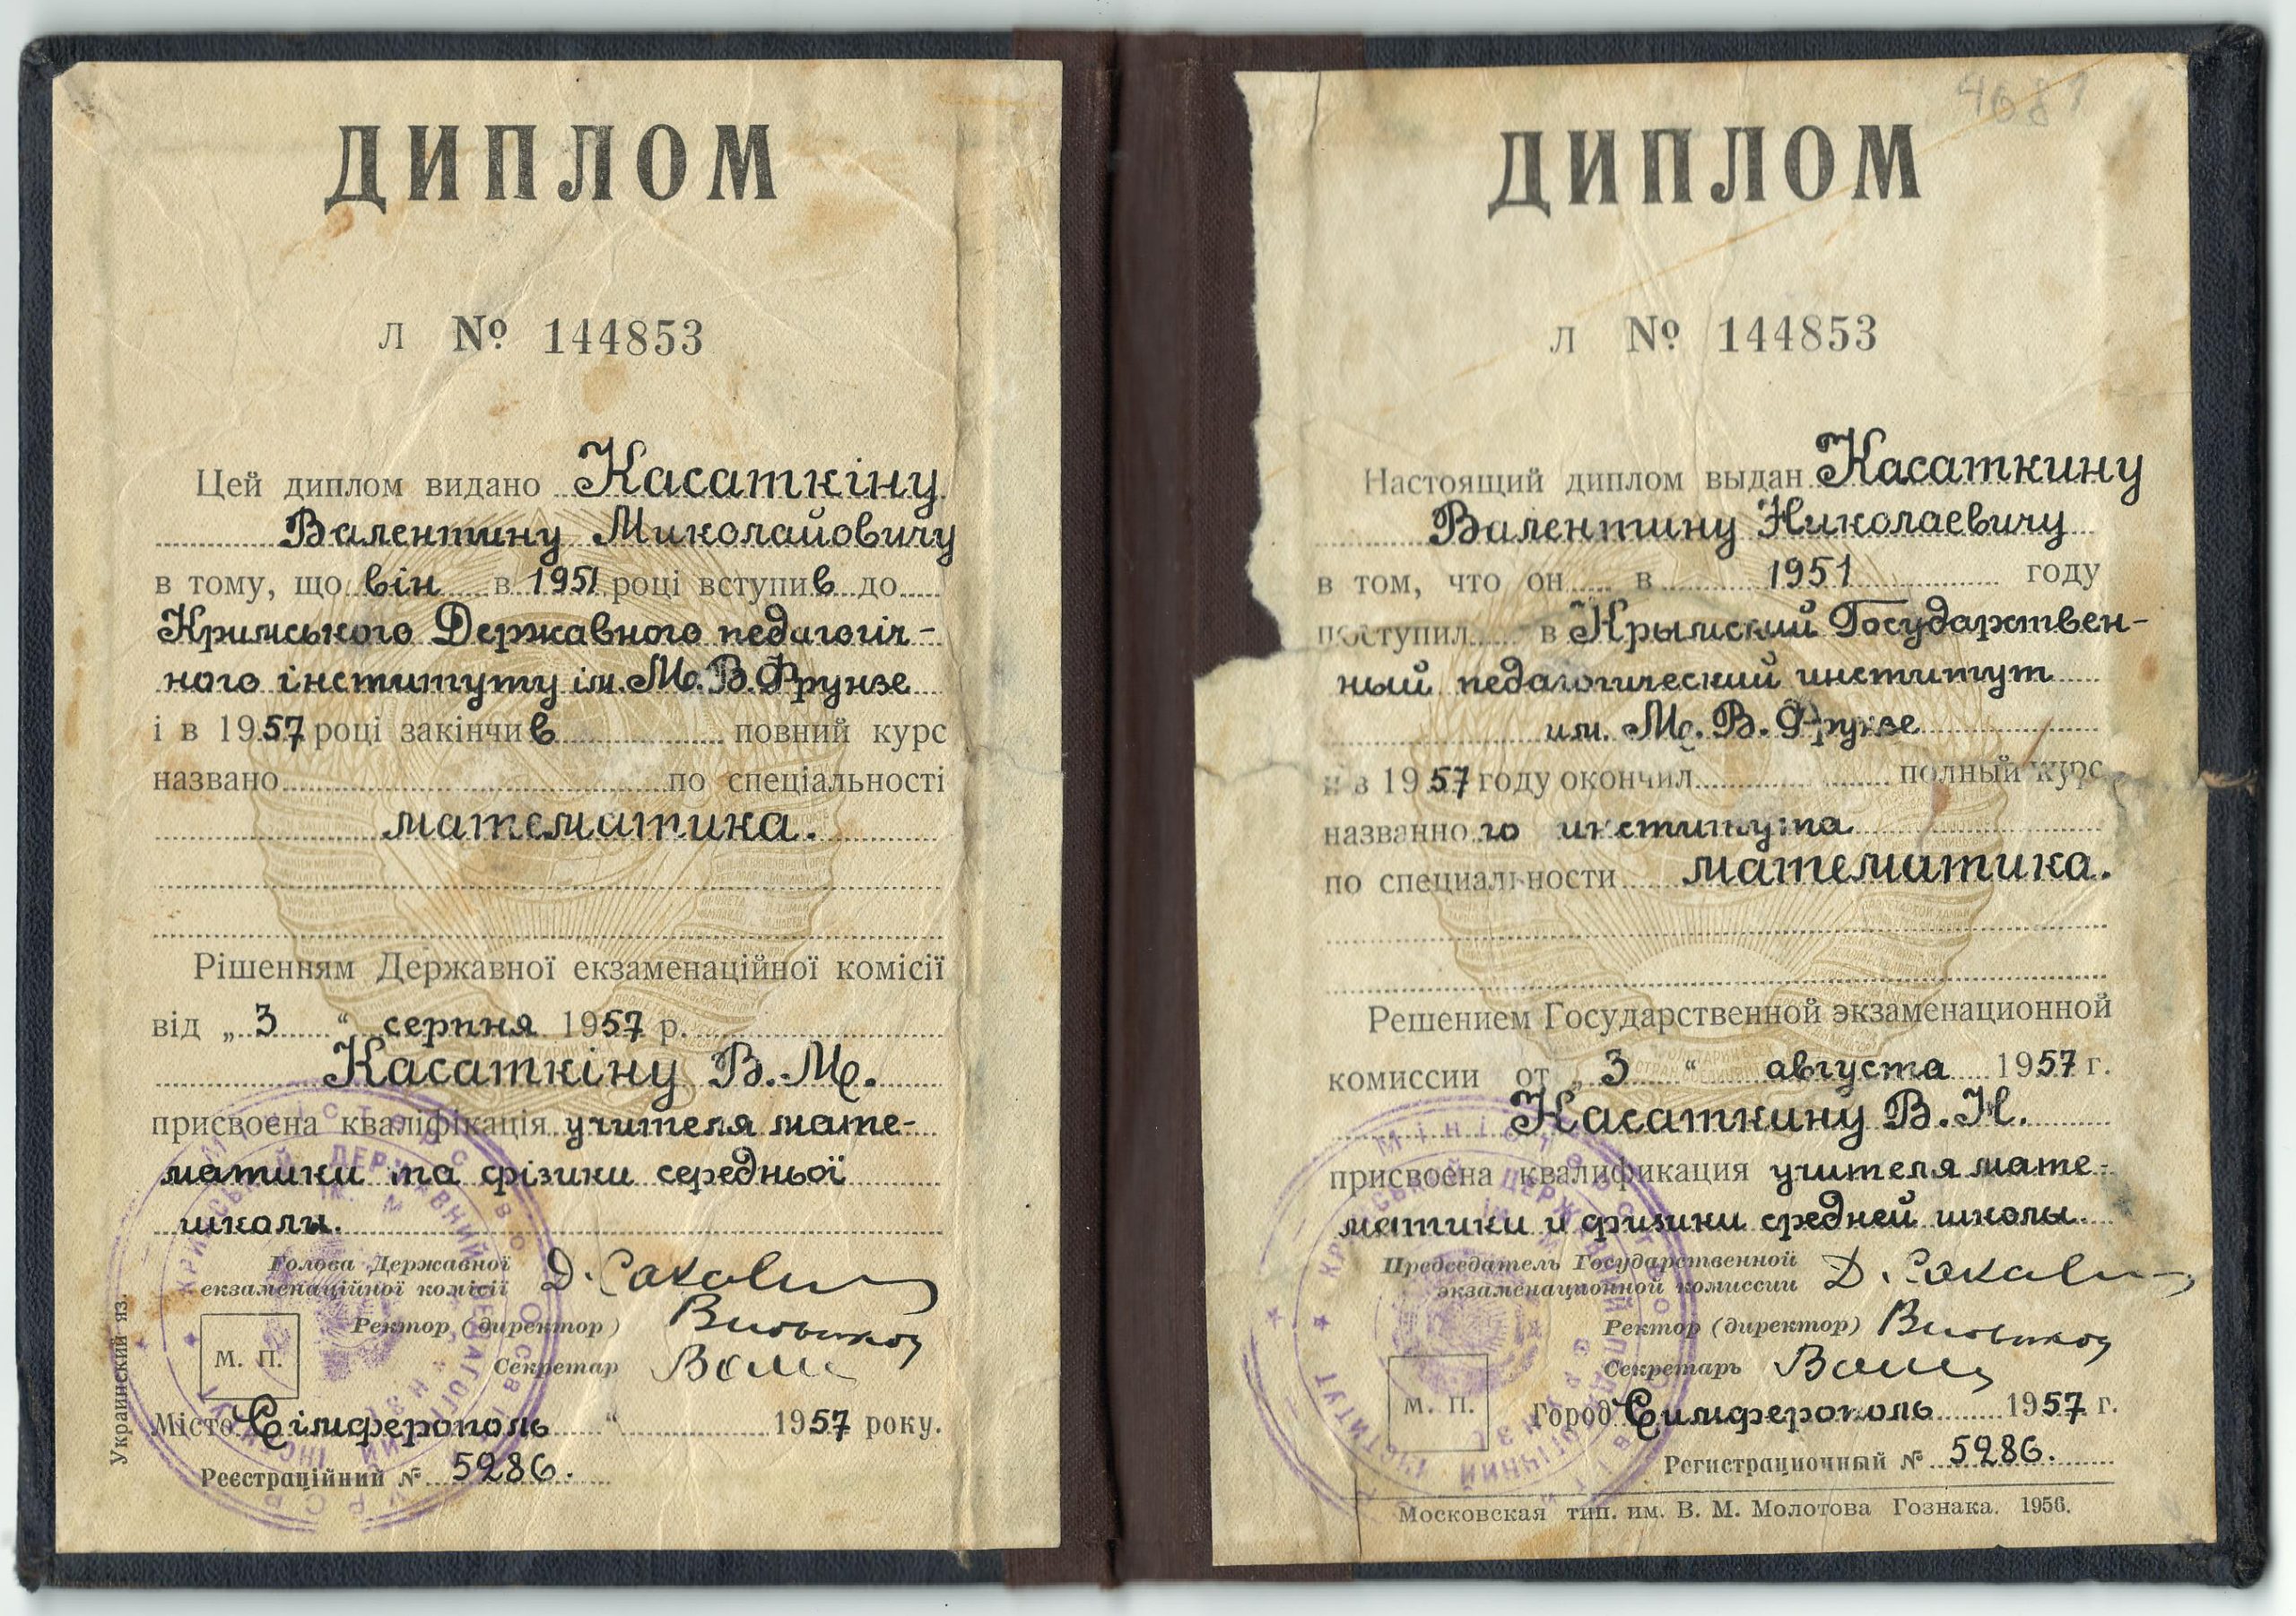 ДИПЛОМ
Л № 144853
Цей диплом видано Касаткіну
Валентину Миколайовичу
в тому, що він в 1951 році вступив до
Кримського Державного педагогіч-
ного інституту ім. М. В. Фрунзе
і в 1957 році закінчив повний курс
названо по спеціальності
математика.
Рішенням Державної екзаменаційної комісії
від „3“ серпня 1957 р.
Касаткіну В. М.
присвоєна кваліфікація учителя мате-
матики та фізики середньої
школи.
Голова Державної
екзаменаційної комісії
Ректор (директор)
Секретар
М. П.
Місто Сімферополь “ 1957 року.
Реєстраційний № 5286.
Украинский яз.
4681
ДИПЛОМ
Л № 144853
Настоящий диплом выдан Касаткину
Валентину Николаевичу
в том, что он в 1951 году
поступил в Крымский Государствен-
ный педагогический институт
им. М. В. Фрунзе
и в 1957 году окончил полный курс
названного института
по специальности математика.
Решением Государственной экзаменационной
комиссии от „3“ августа 1957 г.
Касаткину В. Н.
присвоена квалификация учителя мате-
матики и физики средней школы.
Председатель Государственной
экзаменационной комиссии
Ректор (директор)
Секретарь
М. П.
Город Симферополь 1957 г.
Регистрационный № 5286.
Московская тип. им. В. М. Молотова Гознака. 1956.